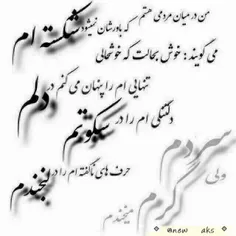 من در میان مردمی هستم
که باورشان نمیشود
شکسته ام
می گویند: خوش بحالت که خوشحالی
تنهایی ام را پنهان می کنم در
دلم
دلتنگی ام را در
سکوتم
حرف های ناگفته ام را در
لبخندم
سردم
ولی
گرم
میخندم
@new aks